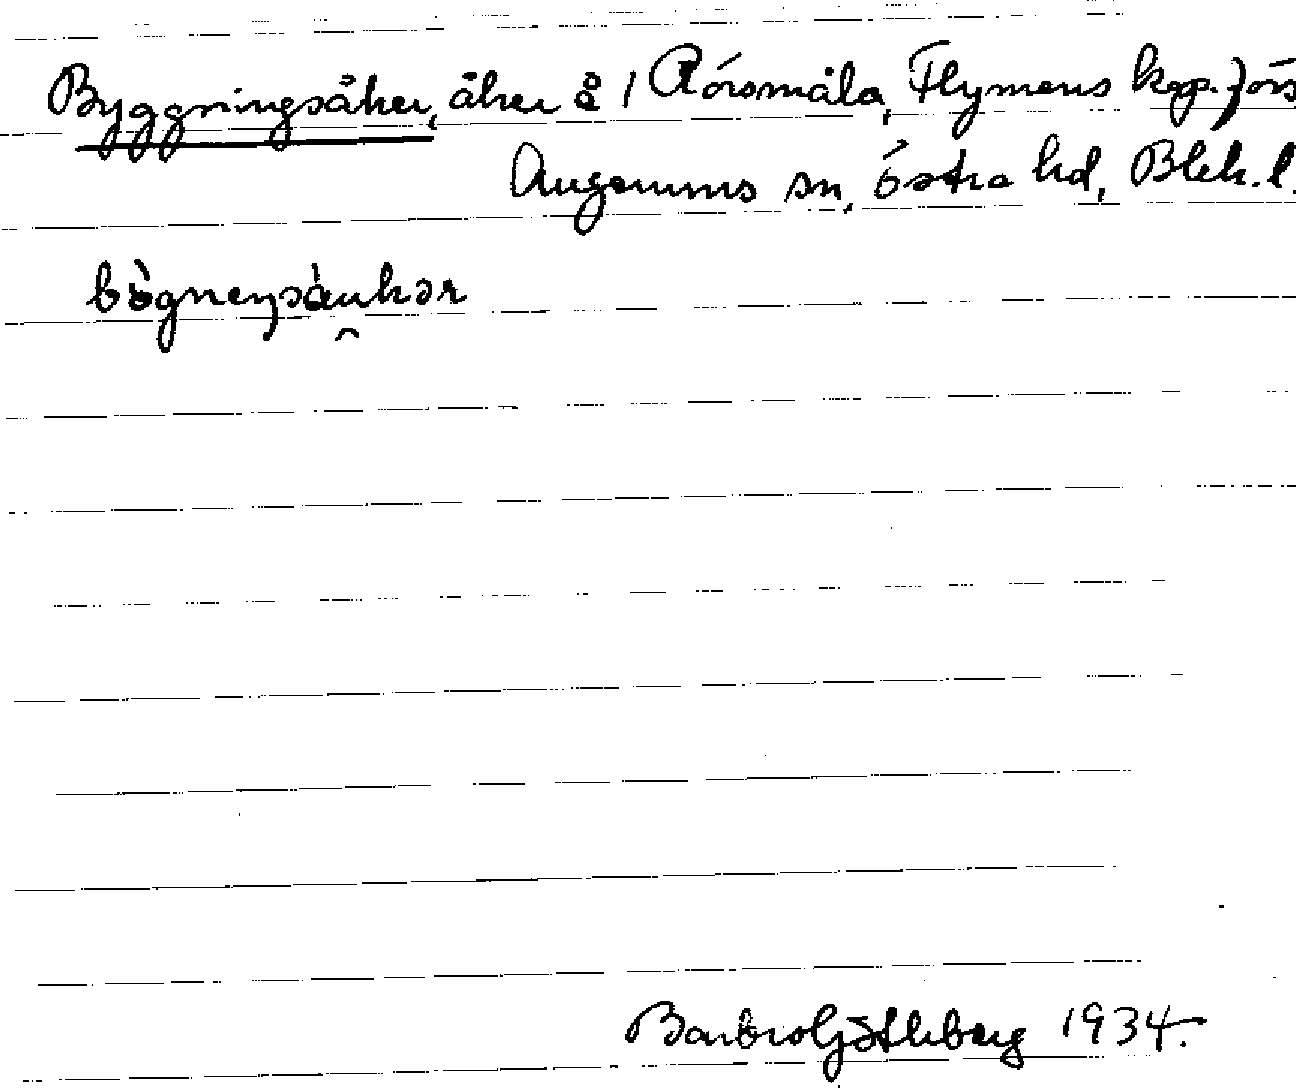 Byggningsåker, åker å 1 Rörsmåla, Flymens kap. förs
Augerums sn, Östra hd, Blek. l.
bògneŋsàukər
Barbro Götheberg 1934.